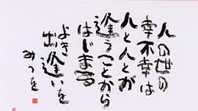 人の世の
幸不幸は
人と人とが
逢うことから
はじまる
よき出逢いを
みつを